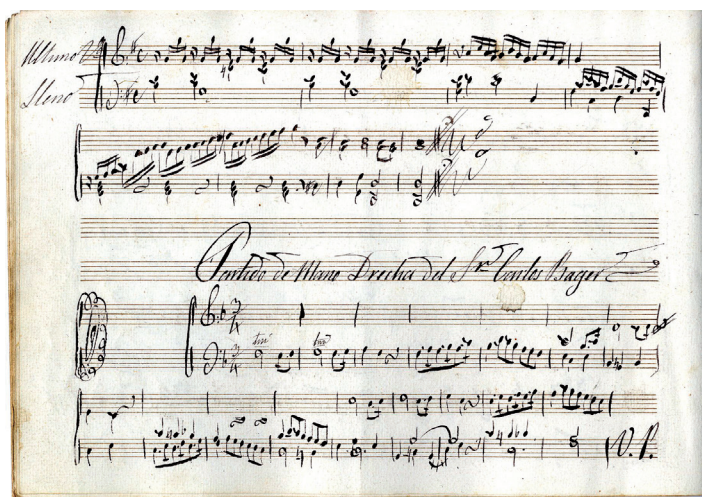 Ultimo
Lleno
Partido de Mano Drecha del Sr. Carlos Bager
3
4
3
4
V. P.